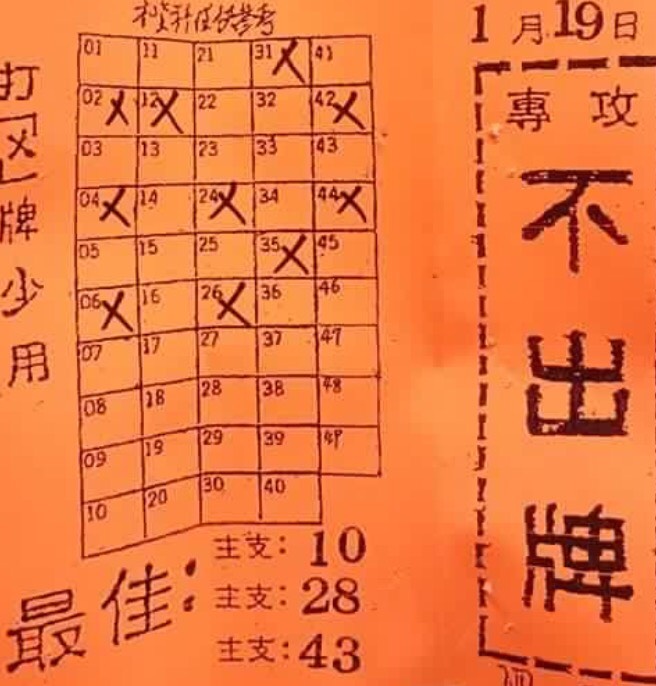 打
[X]
牌
少
用
01 11 21 31X 41
02X 12X 22 32 42X
03 13 23 33 43
04X 14 24X 34 44X
05 15 25 35X 45
06X 16 26X 36 46
07 17 27 37 47
08 18 28 38 48
09 19 29 39 49
10 20 30 40
最佳:
主支: 10
主支: 28
主支: 43
1月19日
專攻
不
出
牌